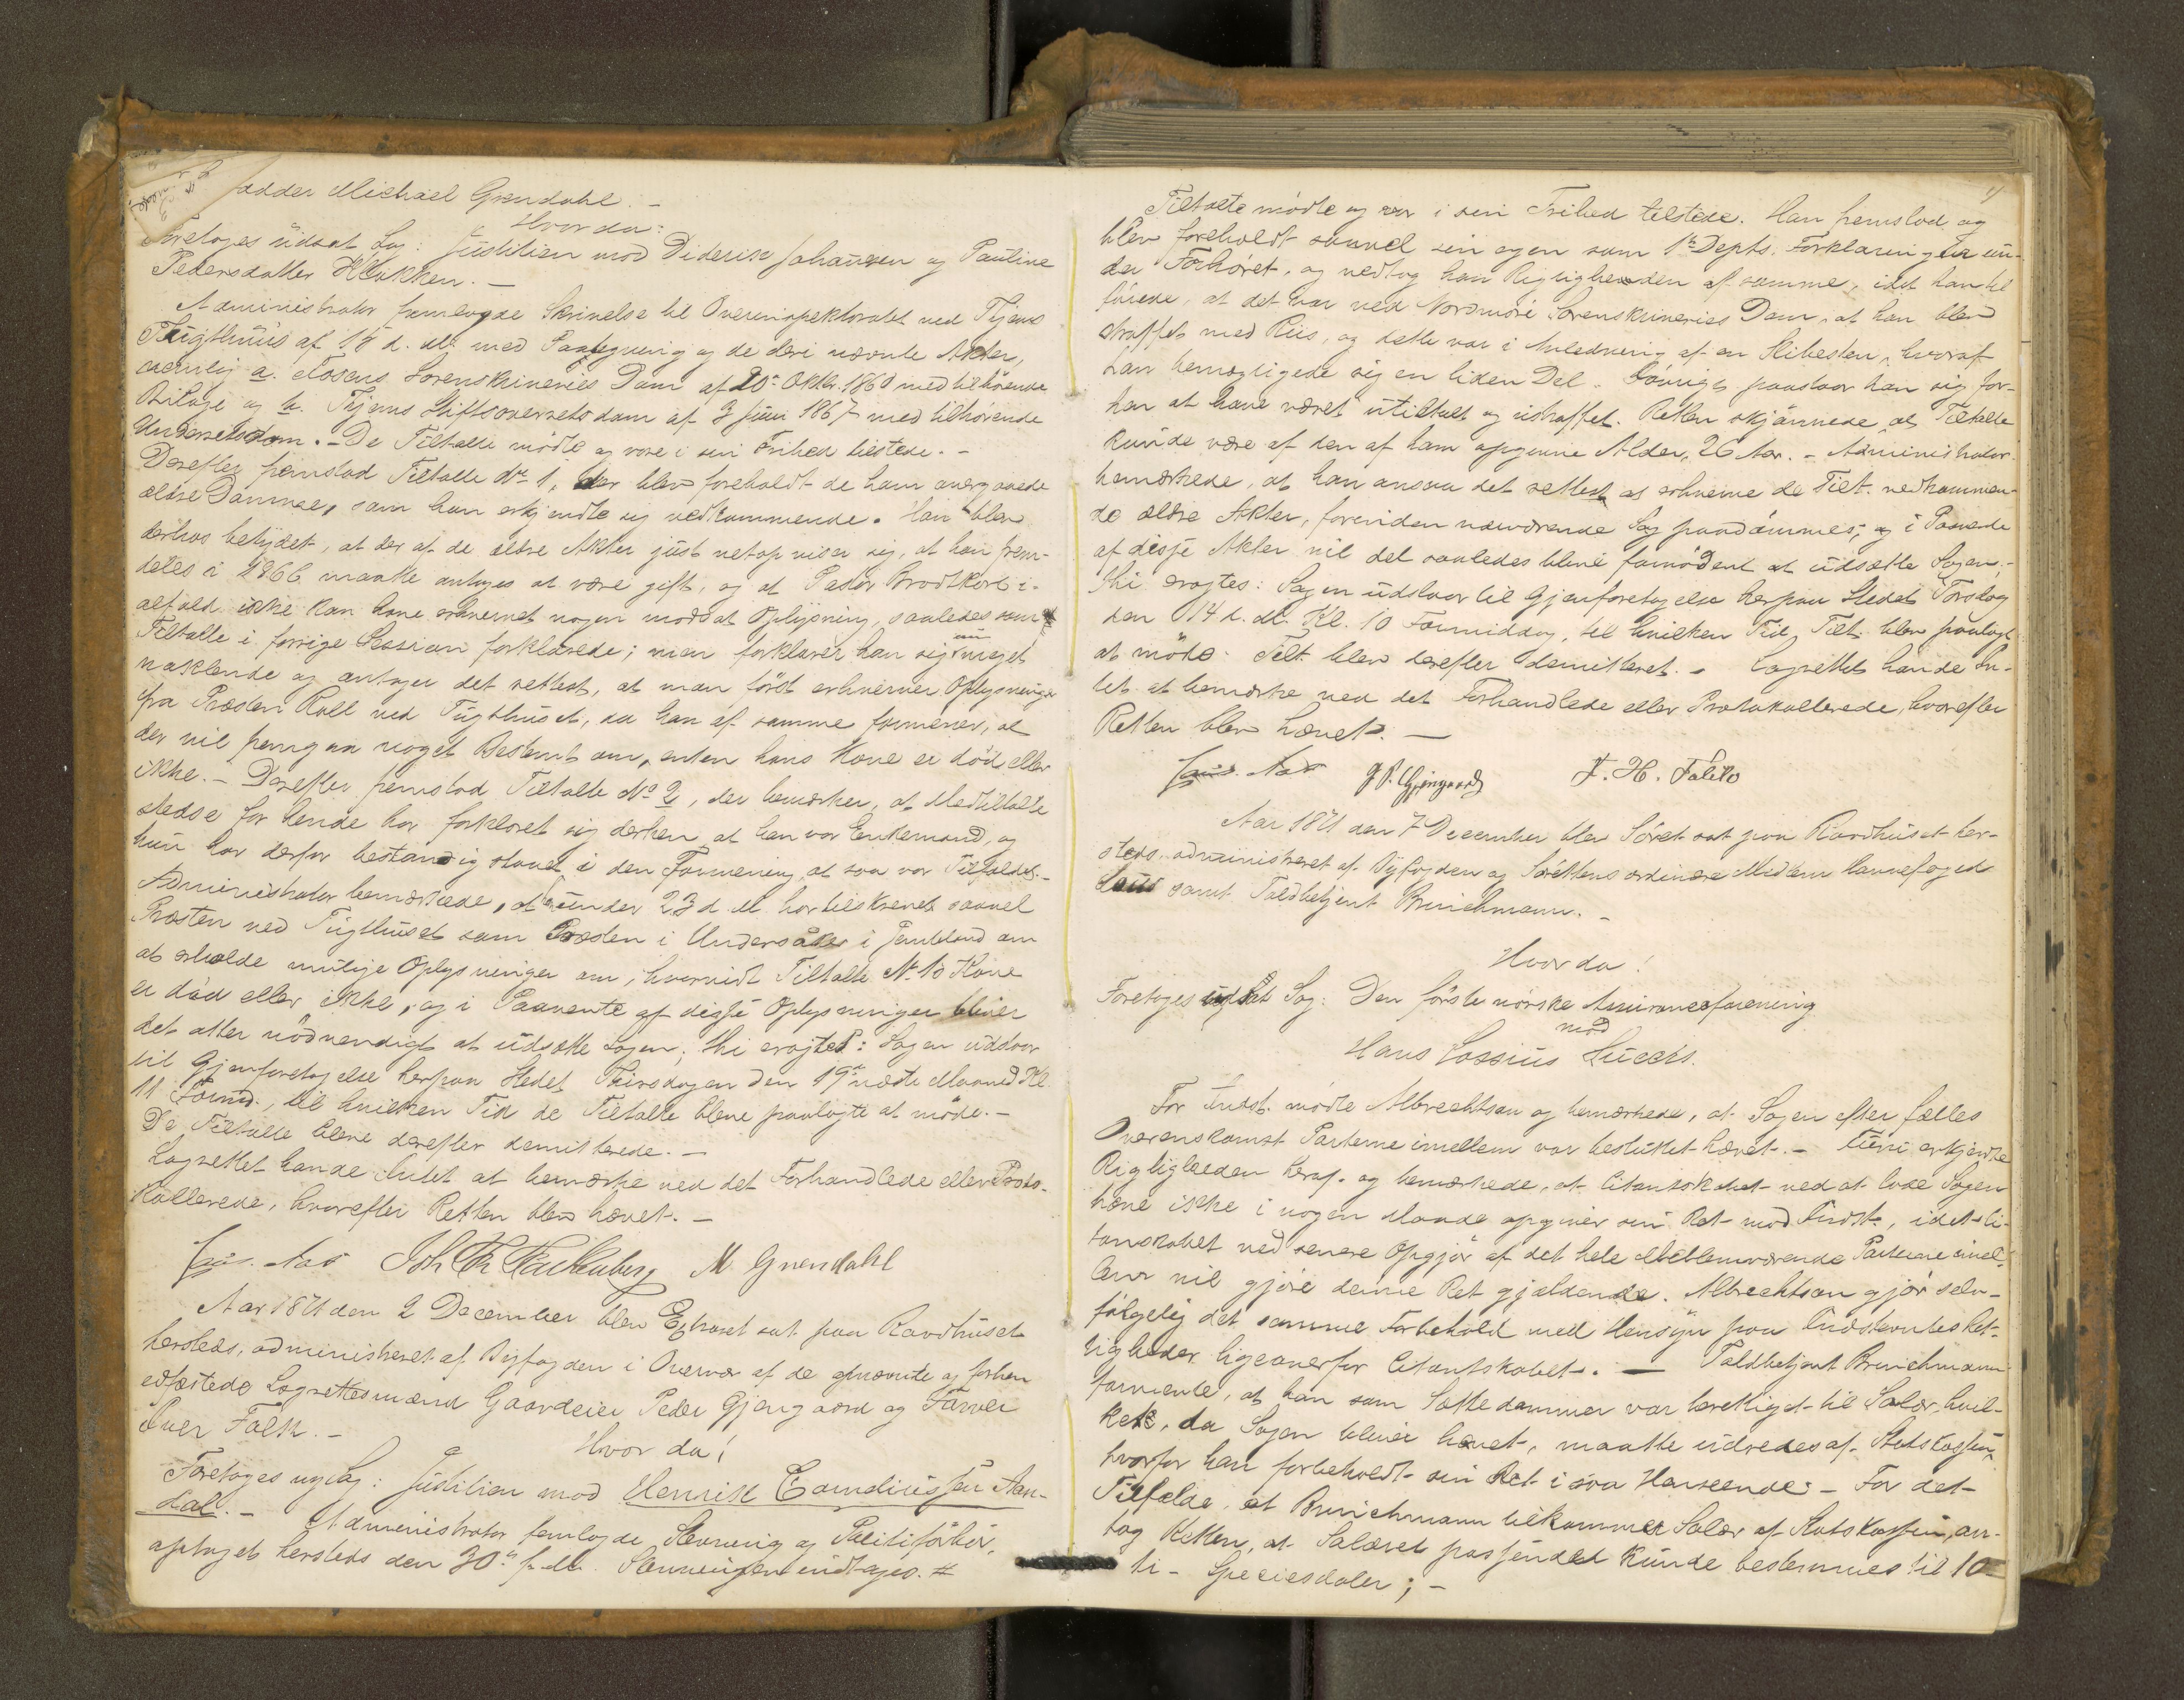 ædder Michael Grendahl. –
Hvor da:
Foretoges udsat Sag: Justitien mod Diderik Johansen og Pauline
Pedersdatter Klokken. –
Administrator fremlagde Skrivelse til Overinspektoratet ved Thjems
Tugthuus af 18 d. M. med Paategning og de deri nævnte Akter,
nemlig a. Fosens Sorenskriveries Dom af 20de Oktbr. 1860 med tilhørende
Bilage og b. Thjems Stiftsoverretsdom af 3 Juni 1867 med tilhørende
Underretsdom. – De Tiltalte mødte og vare i sin Frihed tilstede. –
Derefter fremstod Tiltalte No 1, der blev foreholdt de ham overgaaede
ældre Domme, som han erkjendte sig vedkommende. Han blev
derhos betydet, at der af de ældre Akter just netop viser sig, at han frem-
deles i 1866 maatte antages at være gift, og at Pastor Brodtkorb i-
alfald ikke kan have erhvervet nogen modsat Oplysning, saaledes som
Tiltalte i forrige Session forklarede; men forklarer han sig nu meget
vaklende og antager det rettest, at man först erhverver Oplysninger
fra Præsten Roll ved Tugthuset, da han af samme formener, at
der vil fremgaa noget Bestemt om, enten hans Kone er død eller
ikke. – Derefter fremstod Tiltalte No 2, der bemærker, at Medtiltalte
stedse for hende har forklaret sig derhen at han var Enkemand, og
hun har derfor bestandig staaet i den Formening at saa var Tilfældet. –
Administrator bemærkede, at under 23 d. M. har tilskrevet saavel
Præsten ved Tugthuset som Præsten i Undersåker i Jemtland om
at erholde mulige Oplysninger om, hvorvidt Tiltalte No 1s Kone
er död eller ikke, og i Paavente af disse Oplysninger bliver
det atter nödvendigt at udsætte Sagen; thi eragtes: Sagen udstaar
til Gjenforetagelse herpaa Stedet Thirsdagen den 19de næste Maaned Kl.
11 Formd., til hvilken Tid de Tiltalte bleve paalagte at möde. –
De Tiltalte bleve derefter demitterede. –
Lagrettet havde Intet at bemærke ved det Forhandlede eller Proto-
kollerede, hvorefter Retten blev hævet. –
M. Grendahl
Aar 1871 den 2 December blev Extraret sat paa Raadhuset
hersteds, administreret af Byfogden i Overvær af de opnævnte og forhen
edfæstede Lagrettesmænd Gaardeier Peder Gjengaard og Farver
Iver Falk. –
Hvor da!
Foretoges ny Sag: Justitien mod Henrik Corneliussen Aan-
dal. – Administrator fremlagde Stevning og Politiforhör,
optaget hersteds den 30te f. M. Stevningen indtages. #
Tiltalte mödte og var i sin Frihed tilstede. Han fremstod og
blev foreholdt saavel sin egen som 1ste Depts. Forklaringer un-
der Forhöret, og vedtog han Rigtigheden af samme, idet han til-
föiede, at det var ved Nordmöre Sorenskriveries Dom, at han blev
straffet med Riis, og dette var i Anledning af en Slibesten, hvoraf
han bemægtigede sig en liden Del. Iövrigt paastaar han sig for-
hen at have været utiltalt og ustraffet. Retten skjönnede, at Tiltalte
kunde være af den af ham opgivne Alder, 26 Aar. – Administrator
bemærkede, at han ansaa det rettest at erhverve de Tilt. vedkommen-
de ældre Akter, forinden nærværende Sag paadömmes, og i Paavente
af disse Akter vil det saaledes blive fornödent at udsætte Sagen; –
thi eragtes: Sagen udstaar til Gjenforetagelse herpaa Stedet Torsdag
den 14 d. M. Kl. 10 Formiddag, til hvilken Tid Tilt. blev paalagt
at möde. Tilt. blev derefter demitteret. – Lagrettet havde In-
tet at bemærke ved det Forhandlede eller Protokollerede, hvorefter
Retten blev hævet. –
I. H. Falk
Aar 1871 den 7 December blev Söret sat paa Raadhuset her-
steds, administreret af Byfogden og Sörettens ordinære Medlem Havnefoged
samt Toldbetjent Brinchmann. –
Hvor da!
Foretoges udsat Sag: Den förste norske Assuranceforening
mod
Hans Lossius
For Indst. mödte Albrechtson og bemærkede, at Sagen efter fælles
Overenskomst Parterne imellem var besluttet hævet. – erkjendte
Rigtigheden heraf og bemærkede, at Citantskabet ved at lade Sagen
hæve ikke i nogen Maade opgiver sin Ret mod Indst., idet Ci-
tantskabet ved senere Opgjör af det hele Mellemværende Parterne imel-
lem vil gjöre denne Ret gjældende. Albrechtson gjör selv-
fölgelig det samme Forbehold med Hensyn paa Indstevntes Ret-
tigheder ligeoverfor Citantskabet. – Toldbetjent Brinchmann
formente, at han som Sættedommer var berettiget til Salær, hvil-
ket, da Sagen bliver hævet, maatte udredes af Statskassen,
hvorfor han forbeholdt sin Ret i saa Henseende. – For det
Tilfælde, at Brinchmann tilkommer Salær af Statskassen, an-
tog Retten, at Salæret passende kunde bestemmes til 10
ti – Speciesdaler; –